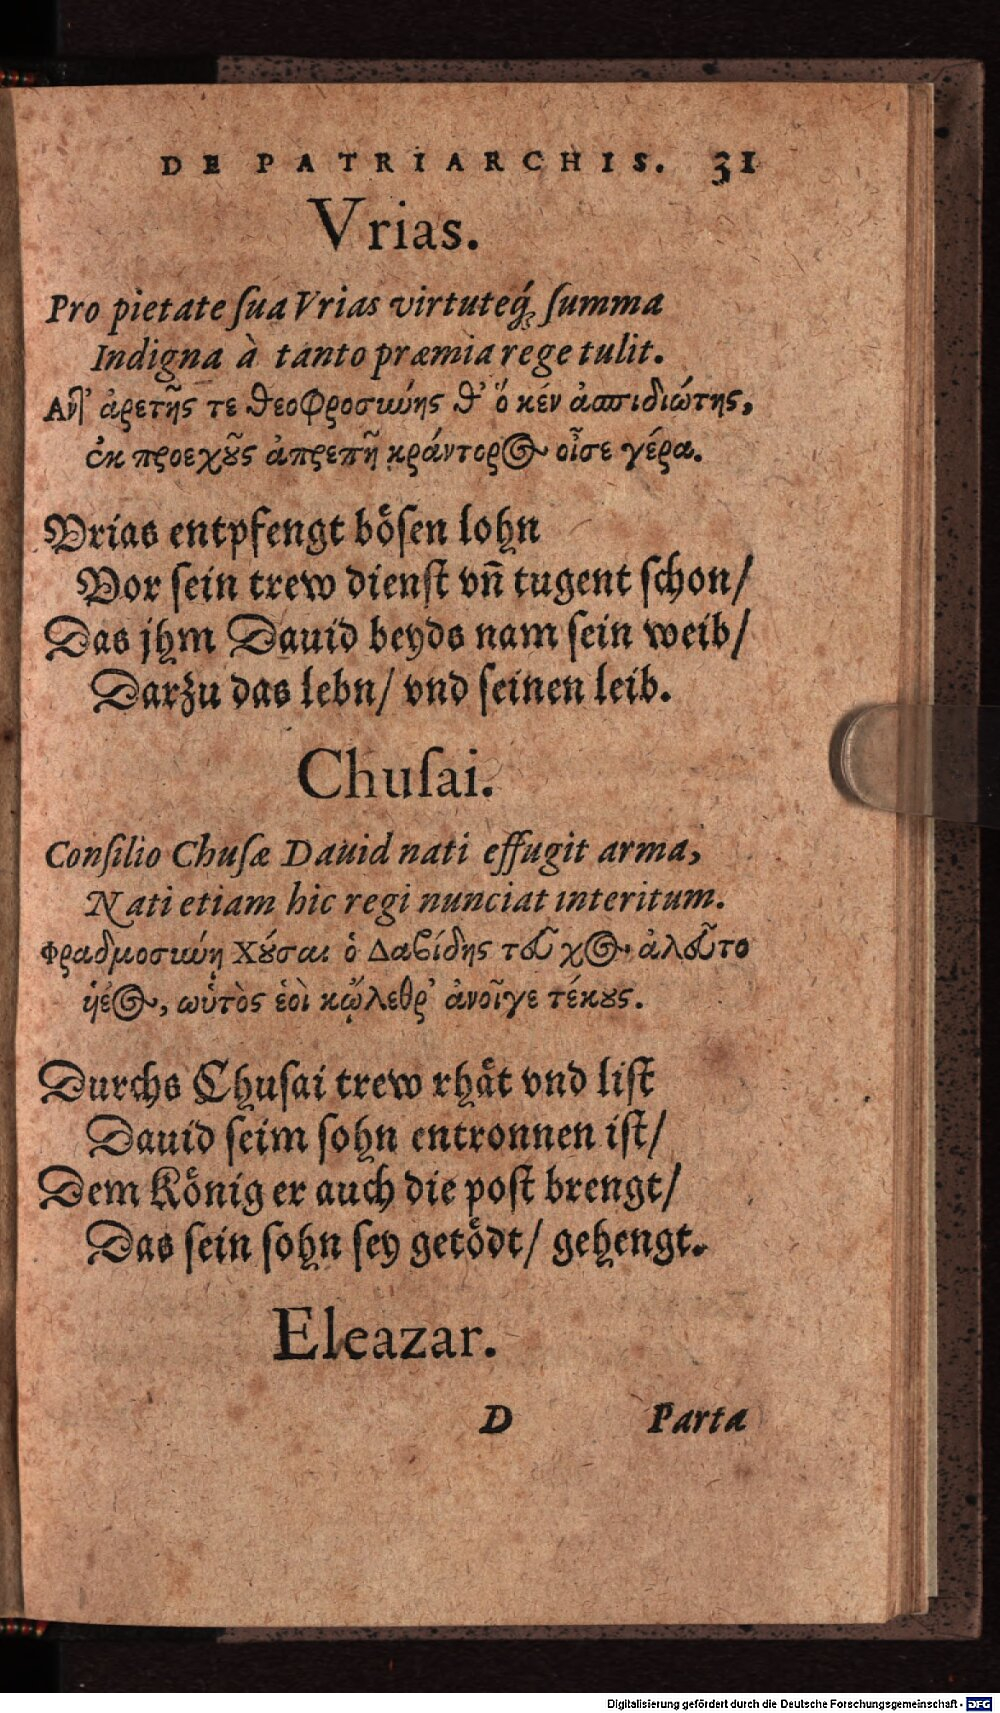 DE PATRIARCHIS. 31
Vrias.
Pro pietate ſua Vrias virtuteq́; ſumma
Indigna à tanto præmia rege tulit.
ἀρετῆς τε θεοφροσύνης θ' ὅ κέν ἀσπιδιώτης,
ἐκ προεχοῦς ἀπρεπῆ κράντορος οἶσε γέρα.
Vrias entpfengt böſen lohn
Vor ſein trew dienſt vñ tugent ſchon/
Das jhm Dauid beyds nam ſein weib/
Darzu das lebn/ vnd ſeinen leib.
Chuſai.
Conſilio Chuſæ Dauid nati effugit arma,
Nati etiam hic regi nunciat interitum.
Φραδμοσύνῃ Χούσαι ὁ Δαβίδης ἀλεῦτο
ωὑτὸς ἑοῖ κᾤλεθρ' ἀνοῖγε τέκους.
Durchs Chuſai trew rhåt vnd liſt
Dauid ſeim ſohn entronnen iſt/
Dem König er auch die poſt brengt/
Das ſein ſohn ſey getödt/ gehengt.
Eleazar.
D Parta
Digitalisierung gefördert durch die Deutsche Forschungsgemeinschaft - DFG